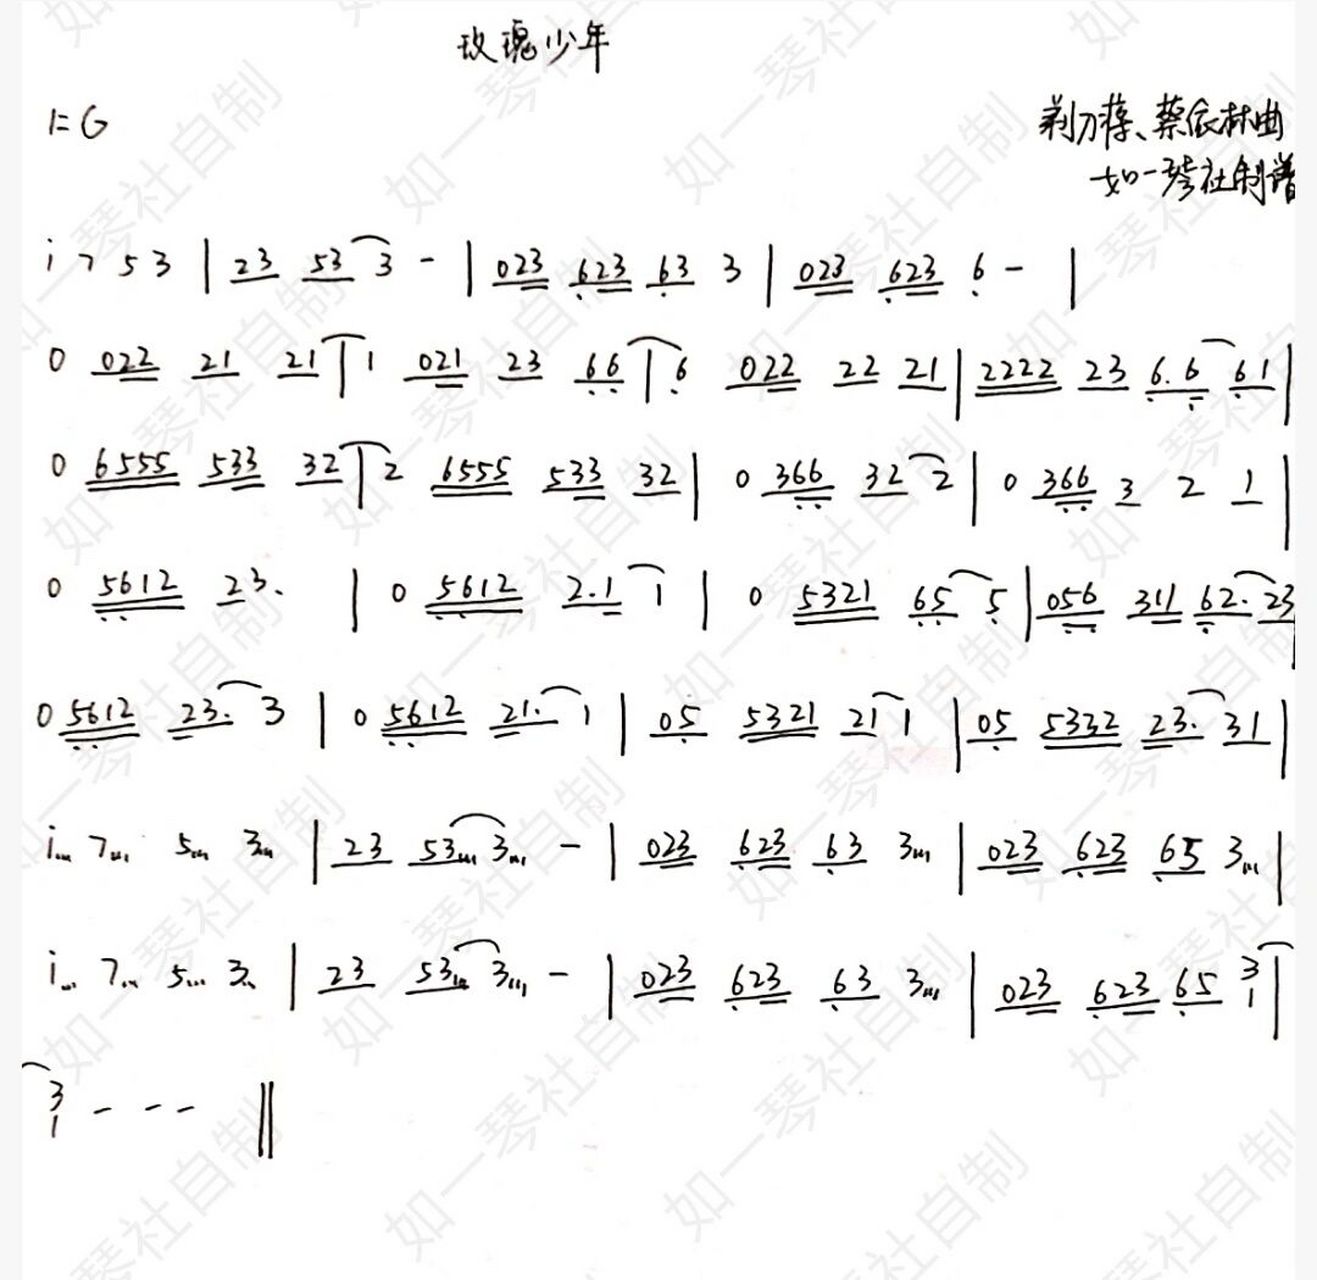 玫瑰少年
1=G
剃刀蒋、蔡依林曲
如一琴社制谱
i 7 5 3 | 23 53 3 - | 023 623 63 3 | 023 623 6 - |
0 022 21 21 | 1 021 23 66 | 6 022 22 21 | 2222 23 6.6 61 |
0 6555 533 32 | 2 6555 533 32 | 0 366 32 2 | 0 366 3 2 1 |
0 5612 23. | 0 5612 2.1 1 | 0 5321 65 5 | 056 311 62. 23
0 5612 23. 3 | 0 5612 21. 1 | 05 5321 21 1 | 05 5322 23. 31 |
i 7 5 3 | 23 53 3 - | 023 623 63 3 | 023 623 65 3 |
i 7 5 3 | 23 53 3 - | 023 623 63 3 | 023 623 65 3 1 |
3 1 - - - ‖
如一琴社自制